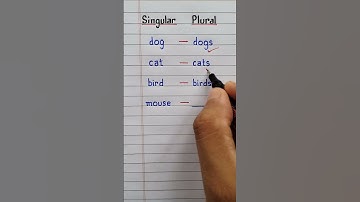 Singular Plural
dog — dogs
cat — cats
bird — birds
mouse — ____